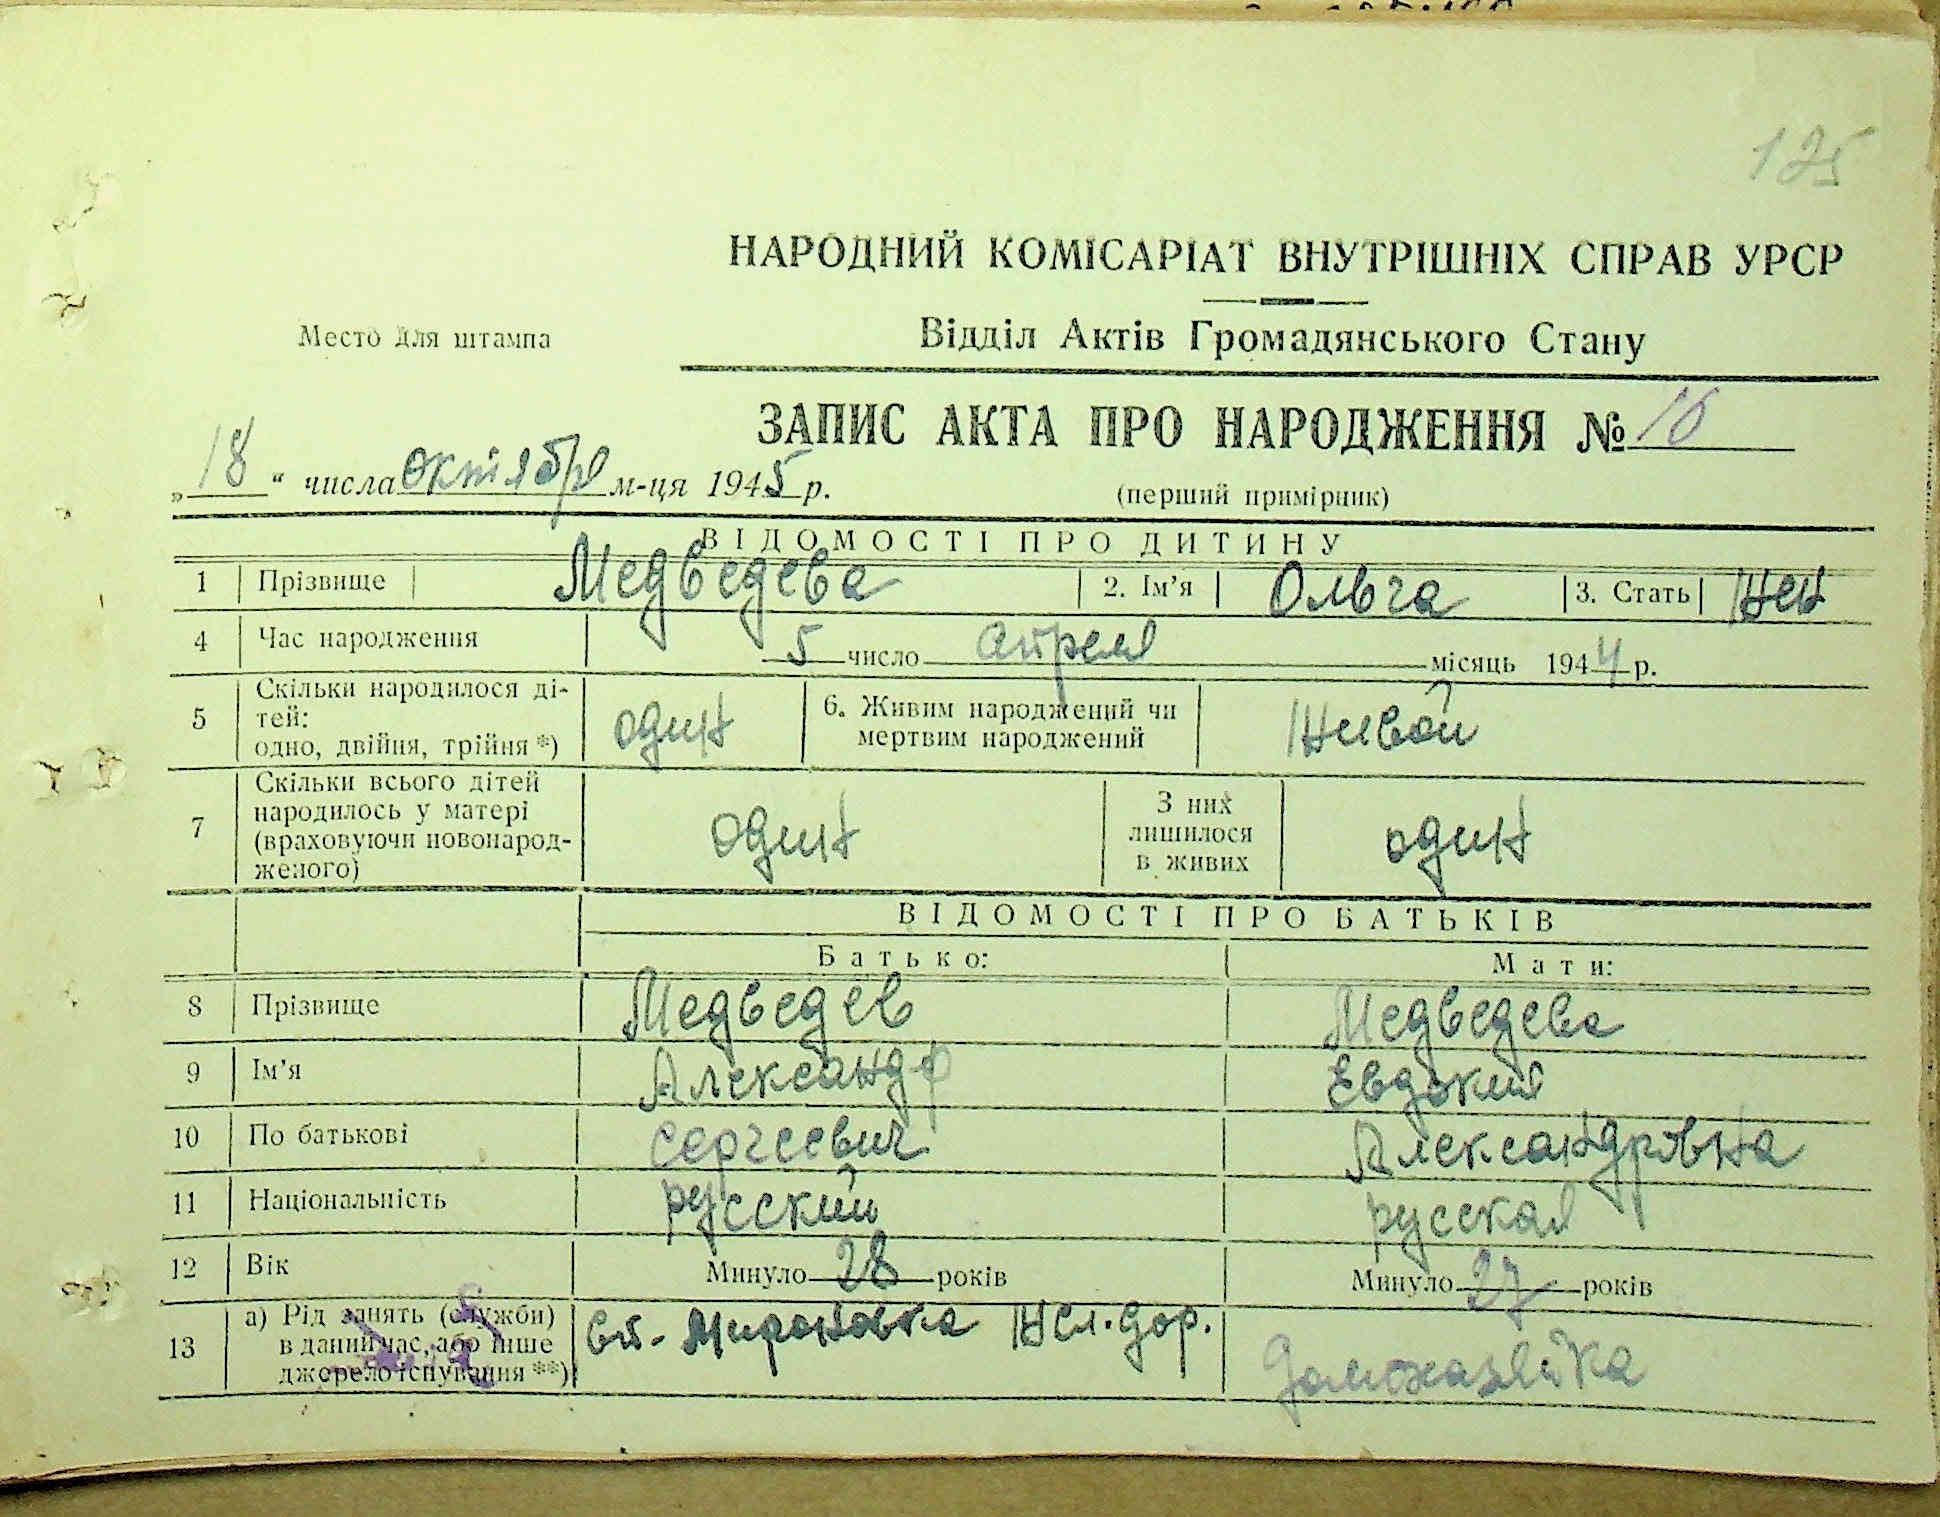 125
НАРОДНИЙ КОМІСАРІАТ ВНУТРІШНІХ СПРАВ УРСР
Место для штампа
Відділ Актів Громадянського Стану
ЗАПИС АКТА ПРО НАРОДЖЕННЯ № 16
„18“ числа октября м-ця 1945 р.
(перший примірник)
ВІДОМОСТІ ПРО ДИТИНУ
1 Прізвище Медведева 2. Ім’я Ольга 3. Стать жен
4 Час народження 5 число апреля місяць 1944 р.
5 Скільки народилося ді-
тей:
одно, двійня, трійня *) один 6. Живим народжений чи
мертвим народжений живой
7 Скільки всього дітей
народилось у матері
(враховуючи новонарод-
женого) один З них
лишилося
в живих один
ВІДОМОСТІ ПРО БАТЬКІВ
Батько: Мати:
8 Прізвище Медведев Медведева
9 Ім’я Александр Евдокия
10 По батькові Сергеевич Александровна
11 Національність русский русская
12 Вік Минуло 28 років Минуло 27 років
13 а) Рід занять (служби)
в даний час, або інше
джерело існування **) ст. Мироновка жел. дор. домохазяйка